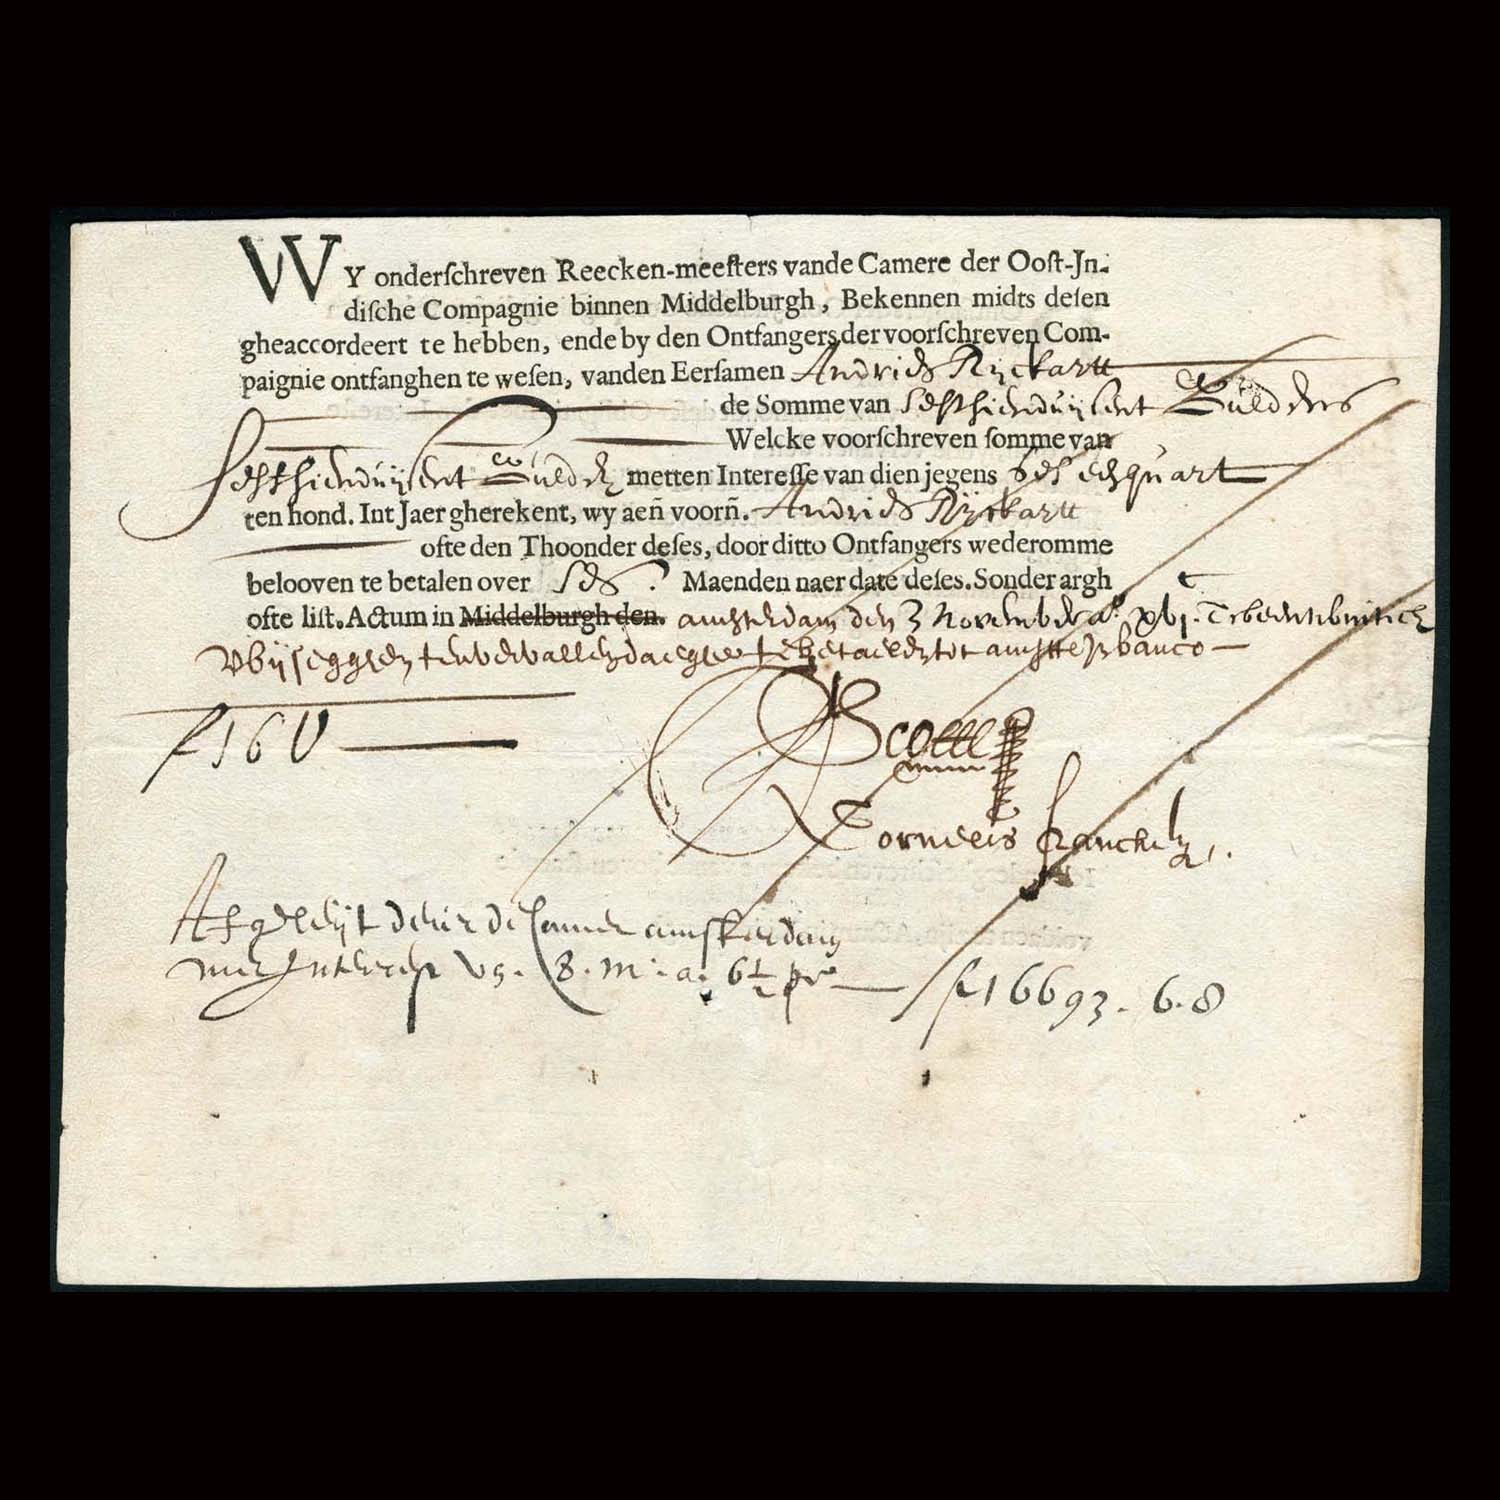 WY onderſchreven Reecken-meeſters vande Camere der Ooſt-Jn-
diſche Compagnie binnen Middelburgh, Bekennen midts deſen
gheaccordeert te hebben, ende by den Ontfangers der voorſchreven Com-
paignie ontfanghen te weſen, vanden Eerſamen Andries Rÿckartt
de Somme van sesthienduÿsent Guldens
Welcke voorſchreven ſomme van
sesthienduÿsent Gulden metten Intereſſe van dien jegens ses een quart
ten hond. Int Jaer gherekent, wy aen̄ voorn̄. Andries Rÿckartt
ofte den Thoonder deſes, door ditto Ontfangers wederomme
belooven te betalen over ses Maenden naer date deſes. Sonder argh
ofte liſt. Actum in Middelburgh den. amsterdam den 3 November
te betaelen tot banco
f 16
Scotte
Corneelis
de Camer amsterdam
Interest 8. m. a. 6½ f 16693. 6. 8